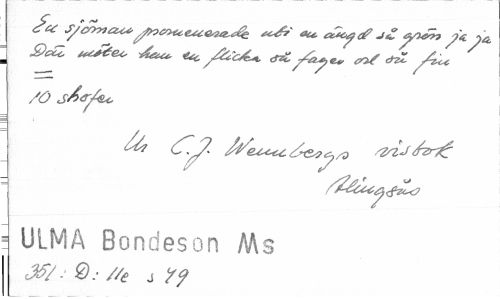 En sjöman promenerade uti en ängd så grön ja ja
Där möter han en flicka så fager och så fin
=
10 strofer
Ur C.J. Wennbergs visbok
Alingsås
ULMA Bondeson Ms
351: D: 11e s 49